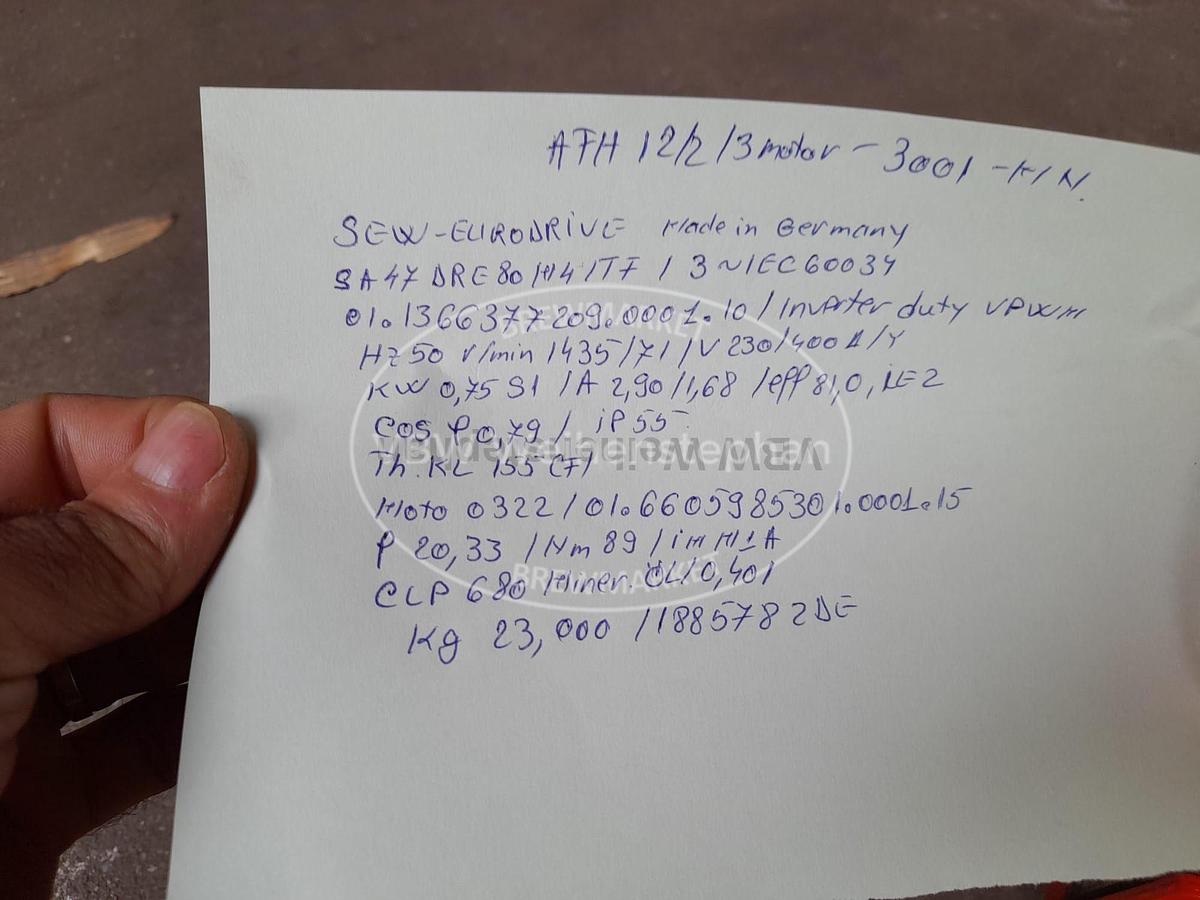 ATH 12/2/3 motor - 3001 - KIN
SEW-EURODRIVE Made in Germany
SA47 DRE80 M4/TF / 3~IEC60034
01.1366377209.0001.10 / Inverter duty VPWM
Hz 50 r/min 1435/71 / V 230/400 Δ/Y
KW 0,75 S1 / A 2,90/1,68 / eff 81,0, iE2
Cos φ 0,79 / iP 55
Th. KL 155 (F)
Moto 0322 / 01.6605985301.0001.15
i 20,33 / Nm 89 / iM M1A
CLP 680 Miner. ÖL / 0,40l
Kg 23,000 / 1885782DE
BREWMARKET
VBW weihenstephan
BREWMARKET